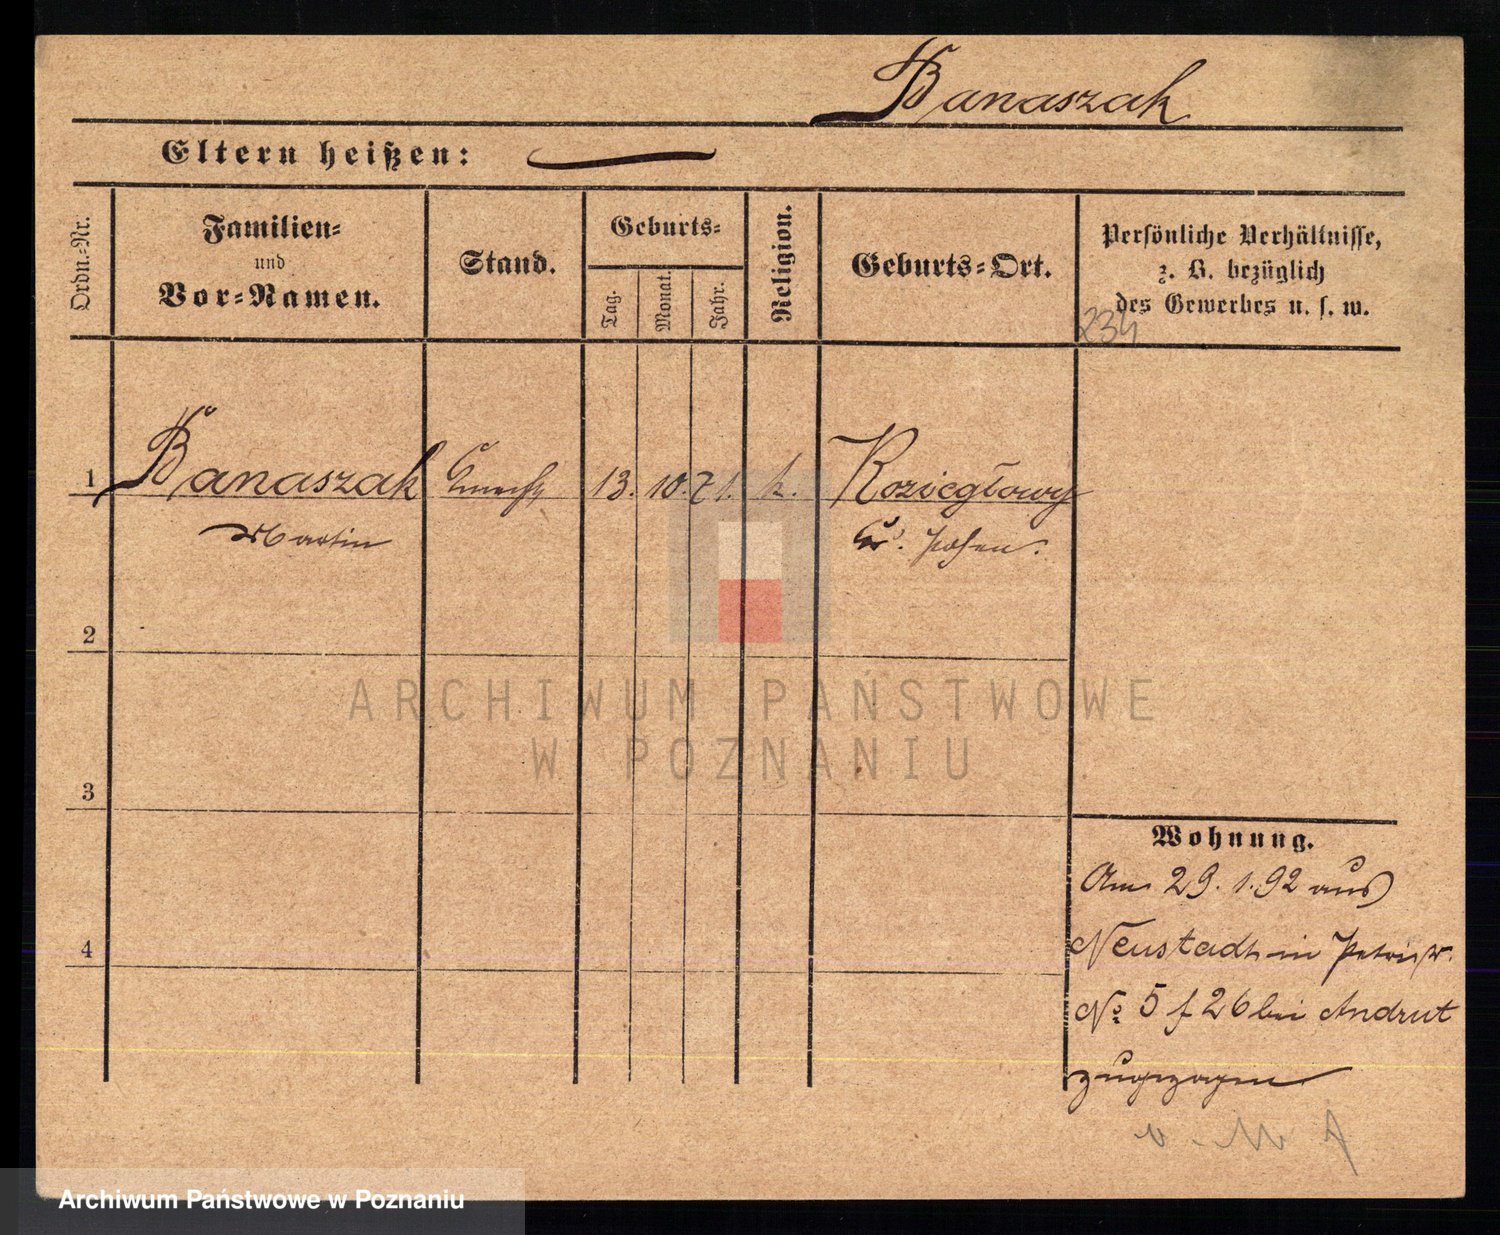 Banaszak
Eltern heißen:
Ordn.-Nr.
Familien-
und
Vor-Namen.
Stand.
Geburts-
Tag.
Monat.
Jahr.
Religion.
Geburts-Ort.
Persönliche Verhältnisse,
z. B. bezüglich
des Gewerbes u. s. w.
234
1 Banaszak Knecht 13. 10. 71. k. Koziegłowy
Martin Kr. Posen.
2
3
4
Wohnung.
Am 29. 1. 92 aus
Neustadt in Petristr.
No 5 f 26 bei Andrut
zugezogen
ARCHIWUM PAŃSTWOWE
W POZNANIU
Archiwum Państwowe w Poznaniu